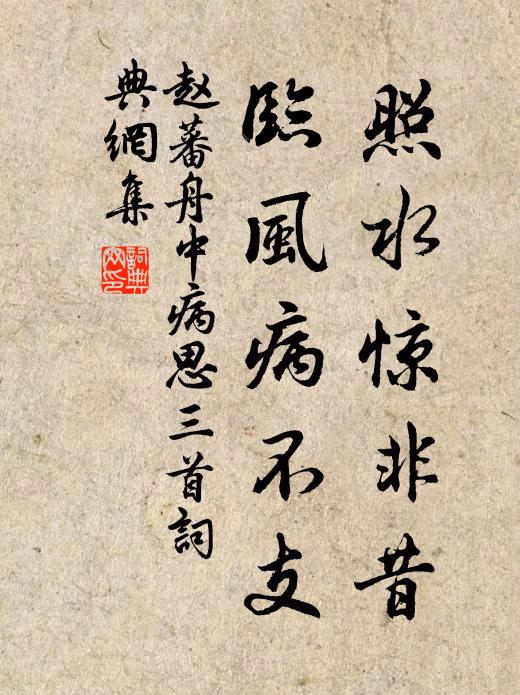 照水惊非昔
臨風病不支
赵蕃舟中病思三首詞
典網集
詞典
文印